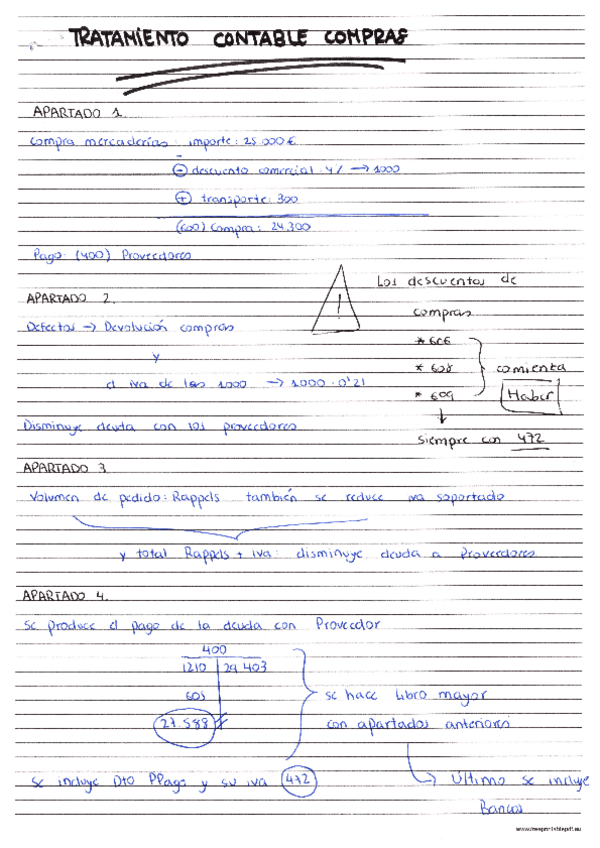 TRATAMIENTO CONTABLE COMPRAS
APARTADO 1.
Compra mercaderías: importe: 25.000€
⊖ descuento comercial 4% → 1000
⊕ transporte: 300
(600) Compra: 24.300
Pago: (400) Proveedores
APARTADO 2.
Defectos → Devolución compras
y
el iva de los 1000 → 1000 · 0'21
Disminuye deuda con los proveedores
!
Los descuentos de
compras
* 606
* 608
* 609
comienza
Haber
↓
siempre con 472
APARTADO 3
Volumen de pedido: Rappels también se reduce iva soportado
y total Rappels + iva: disminuye deuda a Proveedores
APARTADO 4.
Se produce el pago de la deuda con Proveedor
400
1210 29 403
605
27.588
se hace Libro mayor
con apartados anteriores
Se incluye Dto PPago y su iva 472
Último se incluye
Bancos